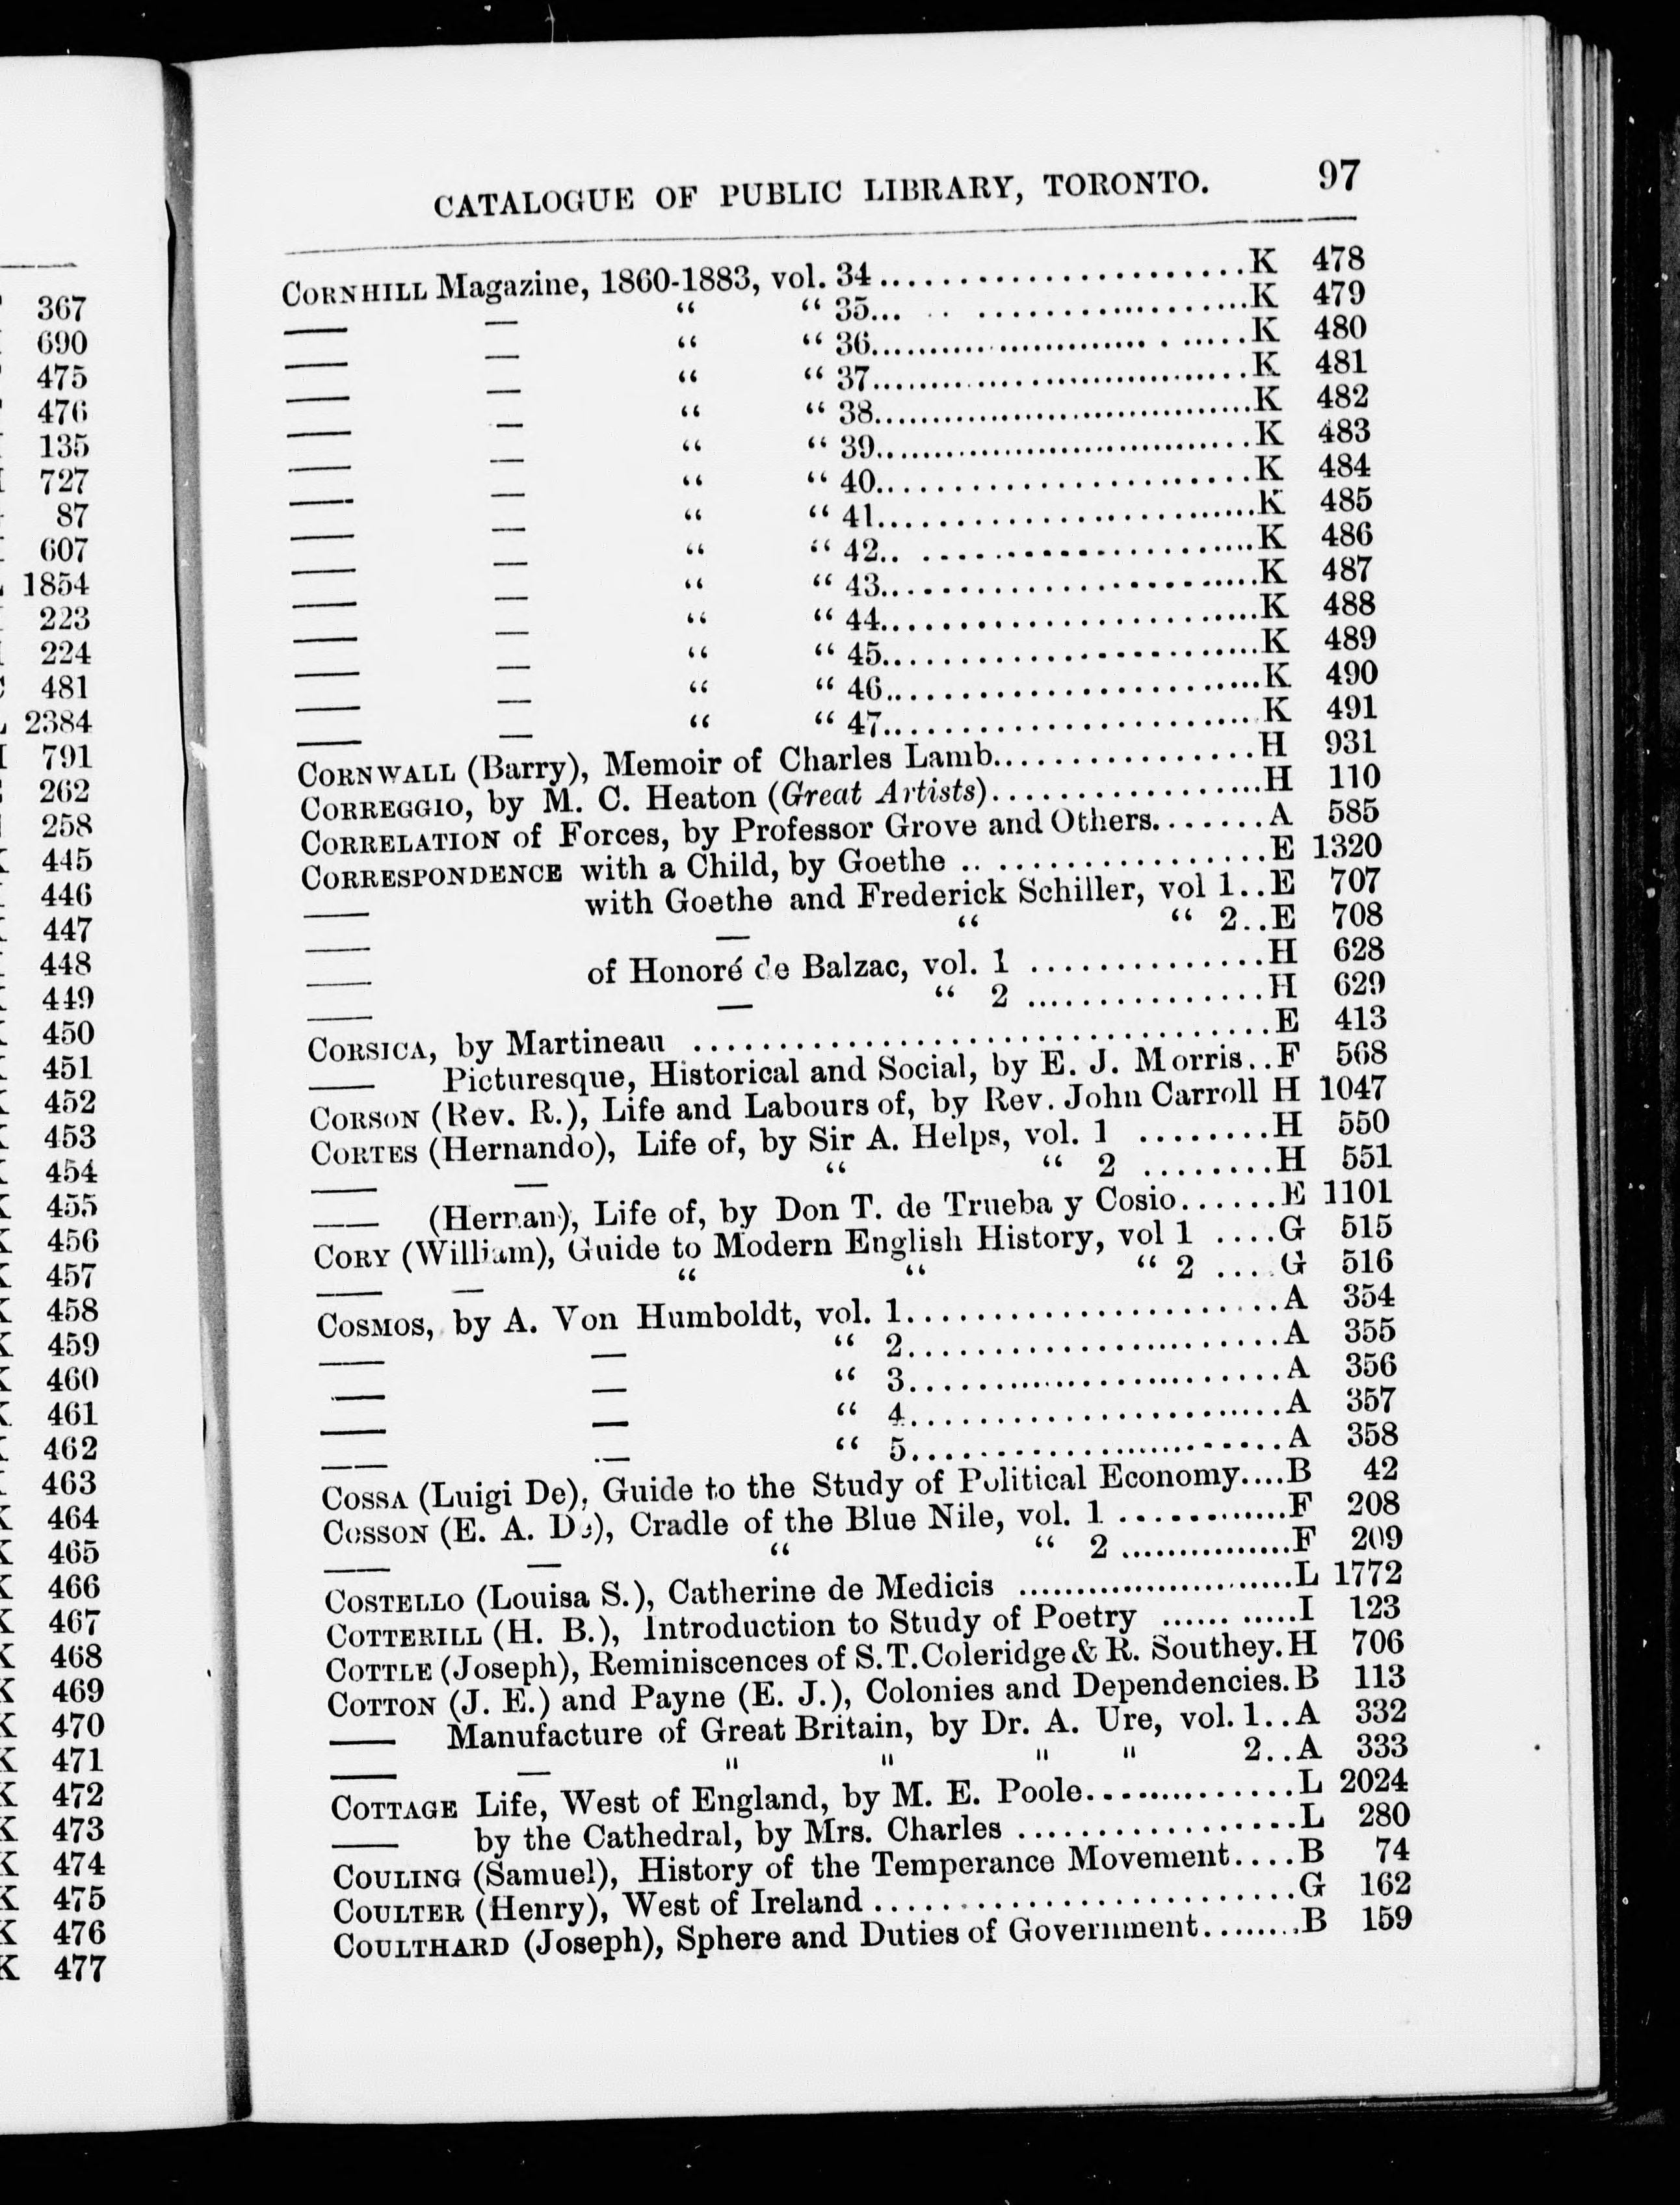 367
690
475
476
135
727
87
607
1854
223
224
481
2384
791
262
258
445
446
447
448
449
450
451
452
453
454
455
456
457
458
459
460
461
462
463
464
465
466
467
468
469
470
471
472
473
474
475
476
K 477
CATALOGUE OF PUBLIC LIBRARY, TORONTO. 97
CORNHILL Magazine, 1860-1883, vol. 34........................K 478
—— — “ “ 35... .. ....................K 479
—— — “ “ 36........................... . .....K 480
—— — “ “ 37................................K 481
—— — “ “ 38................................K 482
—— — “ “ 39................................K 483
—— — “ “ 40..........................K 484
—— — “ “ 41............................K 485
—— — “ “ 42.. ........................K 486
—— — “ “ 43............................K 487
—— — “ “ 44..........................K 488
—— — “ “ 45..........................K 489
—— — “ “ 46..........................K 490
—— — “ “ 47..........................K 491
CORNWALL (Barry), Memoir of Charles Lamb.................H 931
CORREGGIO, by M. C. Heaton (Great Artists)...................H 110
CORRELATION of Forces, by Professor Grove and Others........A 585
CORRESPONDENCE with a Child, by Goethe .. .................E 1320
—— with Goethe and Frederick Schiller, vol 1..E 707
—— — “ “ 2..E 708
—— of Honoré de Balzac, vol. 1 ................H 628
—— — “ 2 ................H 629
CORSICA, by Martineau .......................................E 413
—— Picturesque, Historical and Social, by E. J. Morris..F 568
CORSON (Rev. R.), Life and Labours of, by Rev. John Carroll H 1047
CORTES (Hernando), Life of, by Sir A. Helps, vol. 1 .........H 550
—— — “ “ 2 .........H 551
—— (Hernan), Life of, by Don T. de Trueba y Cosio......E 1101
CORY (William), Guide to Modern English History, vol 1 ....G 515
—— — “ “ “ 2 ....G 516
COSMOS, by A. Von Humboldt, vol. 1.........................A 354
—— — “ 2..........................A 355
—— — “ 3..........................A 356
—— — “ 4..........................A 357
—— — “ 5..........................A 358
COSSA (Luigi De), Guide to the Study of Political Economy....B 42
COSSON (E. A. De), Cradle of the Blue Nile, vol. 1 .............F 208
—— — “ “ 2 ...............F 209
COSTELLO (Louisa S.), Catherine de Medicis ........................L 1772
COTTERILL (H. B.), Introduction to Study of Poetry ...... .....I 123
COTTLE (Joseph), Reminiscences of S.T.Coleridge & R. Southey.H 706
COTTON (J. E.) and Payne (E. J.), Colonies and Dependencies.B 113
—— Manufacture of Great Britain, by Dr. A. Ure, vol. 1..A 332
—— — " " " " 2..A 333
COTTAGE Life, West of England, by M. E. Poole...............L 2024
—— by the Cathedral, by Mrs. Charles ...................L 280
COULING (Samuel), History of the Temperance Movement....B 74
COULTER (Henry), West of Ireland ..........................G 162
COULTHARD (Joseph), Sphere and Duties of Government........B 159